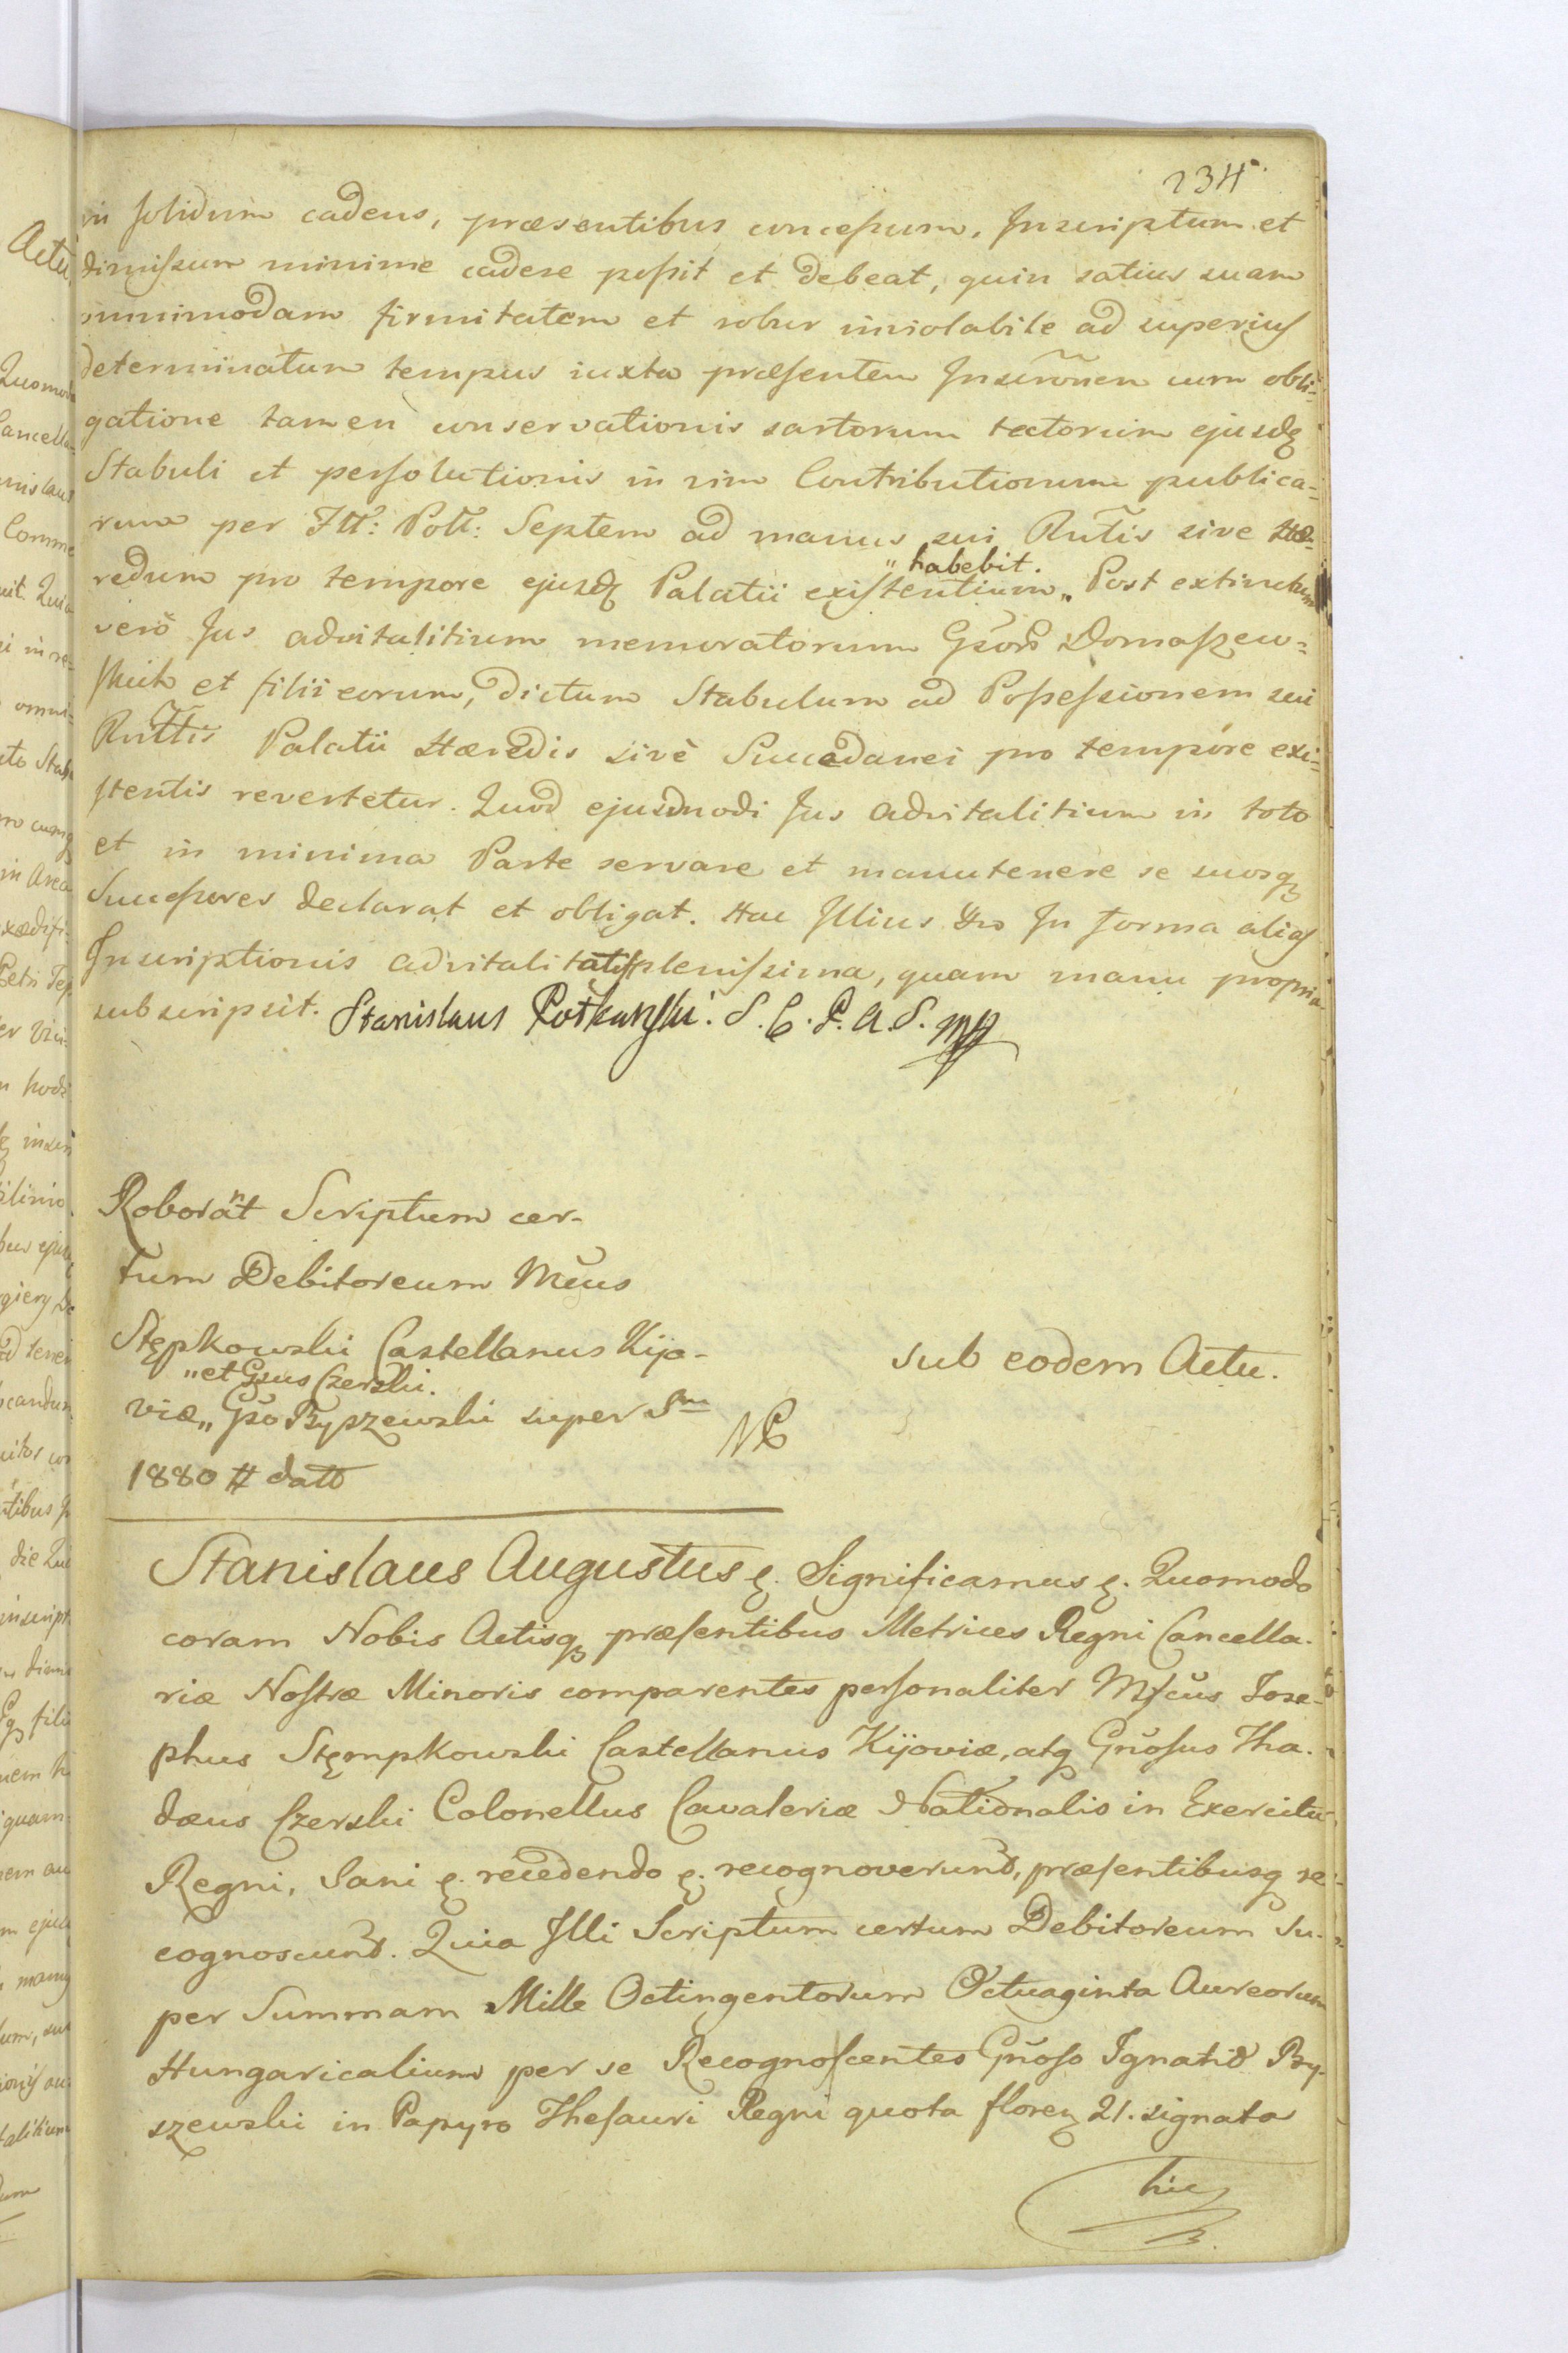 234
in solidum cadens, præsentibus concessum, Inscriptum et
dimissum minime cadere possit et debeat, quin satius suam
omnimodam firmitatem et robur inviolabile ad superius
determinatum tempus iuxta præsentem Inscrõnem cum obli=
gatione tamen conservationis sartorum tectorum ejusdq
Stabuli et persolutionis in vim Contributionum publica=
rum per Flł: Poll: Septem ad manus sui Rñtis sive Hæ-
redum pro tempore ejusdq Palatii existentium „ habebit. Post extinctum
verò Jus advitalitium memoratorum Gsõrũ Domaszew=
skich et filii eorum, dictum Stabulum ad Possessionem sui
Rñttis Palatii Hæredis sivè Succedanei pro tempore exi=
stentis revertetur. Quod ejusdmodi Jus advitalitium in toto
et in minima Parte servare et manutenere se suosq
Successores declarat et obligat. Hac Illius In forma
Inscriptionis advitalitatis plenissima, quam manu propria
subscripsit. Stanislaus Potkański. S. C. P. A. S. mp
Roborañt Scriptum cer-
tum Debitoreum Mcus
Stępkowski Castellanus Kijo-
„et Gsus Czerski.
viæ„ Gso Byszewski super Sm
1880 # datt
sub eodem Actu.
Stanislaus Augustus &. Significamus &. Quomodo
coram Nobis Actisq præsentibus Metrices Regni Cancella-
riæ Nostræ Minoris comparentes personaliter Mfcus Jose-
phus Stępkowski Castellanus Kijoviæ, atq Gñosus Tha-
dæus Czerski Colonellus Cavaleriæ Nationalis in Exercitu
Regni, Sani &. recedendo &. recognoverund, præsentibusq re-
cognoscund. Quia Illi Scriptum certum Debitoreum Su-
per Summam Mille Octingentorum Octuaginta Aureorum
Hungaricalium per se Recognoscentes Gñoso Ignatio By-
szewski in Papyro Thesauri Regni quota floren 21. signata
hic